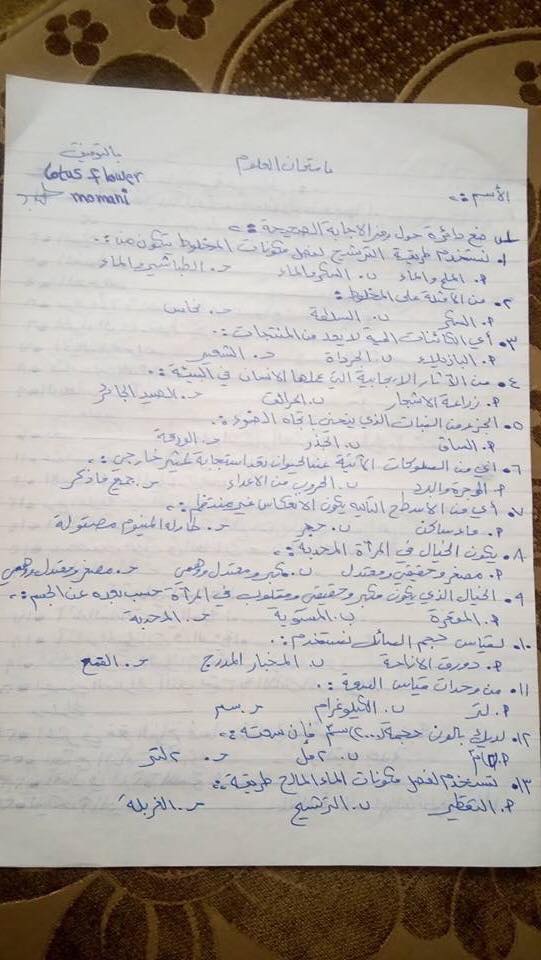 امتحان العلوم
بالتوفيق
lotus flower
momani
الاسم :.
س١ ضع دائرة حول رمز الاجابة الصحيحة :.
١. نستخدم طريقة الترشيح لفصل مكونات المخلوط تتكون من :.
P. الملح والماء ب. السكر والماء حـ. الطباشير والماء
٢. من الأمثلة على المخلوط :
P. السكر ب. السلطة حـ. نحاس
٣. أي الكائنات الحية لا يعد من المنتجات :.
P. البازيلاء ب. الجرادة حـ. الشعير
٤. من الآثار الايجابية التي عملها الانسان في البيئة :.
P. زراعة الاشجار ب. الحرائق حـ. الصيد الجائر
٥. الجزء من النبات الذي ينحني باتجاه الضوء :.
P. الساق ب. الجذر حـ. الورقة
٦. أي من السلوكات الآتية عند الحيوان تعد استجابة لمثير خارجي :.
P. الجوع والبرد ب. الهروب من الاعداء حـ. جميع ما ذكر
٧. أي من الأسطح التالية يكون الانعكاس غير منتظم :.
P. ماء ساكن ب. حجر حـ. طارة المنيوم مصقولة
٨. يكون الخيال في المرآة المحدبة :.
P. مصغر وحقيقي ومعتدل ب. مكبر ومعتدل ووهمي حـ. مصغر ومعتدل ووهمي
٩. الخيال الذي يكون مكبر وحقيقي ومقلوب في المرآة حسب بعده عن الجسم :.
P. المقعرة ب. المستوية حـ. المحدبة
١٠. لقياس حجم السائل نستخدم :.
P. دورق الازاحة ب. المخبار المدرج حـ. القمع
١١. من وحدات قياس السعة :.
P. لتر ب. الكيلوغرام حـ. سم
١٢. لدي بالون حجمة (٢٠٠٠) سم٣ فإن سعته :.
ب. ٢ مل حـ. ٢ لتر
١٣. نستخدم لفصل مكونات الماء المالح طريقة :.
P. التقطير ب. الترشيح حـ. الغربلة